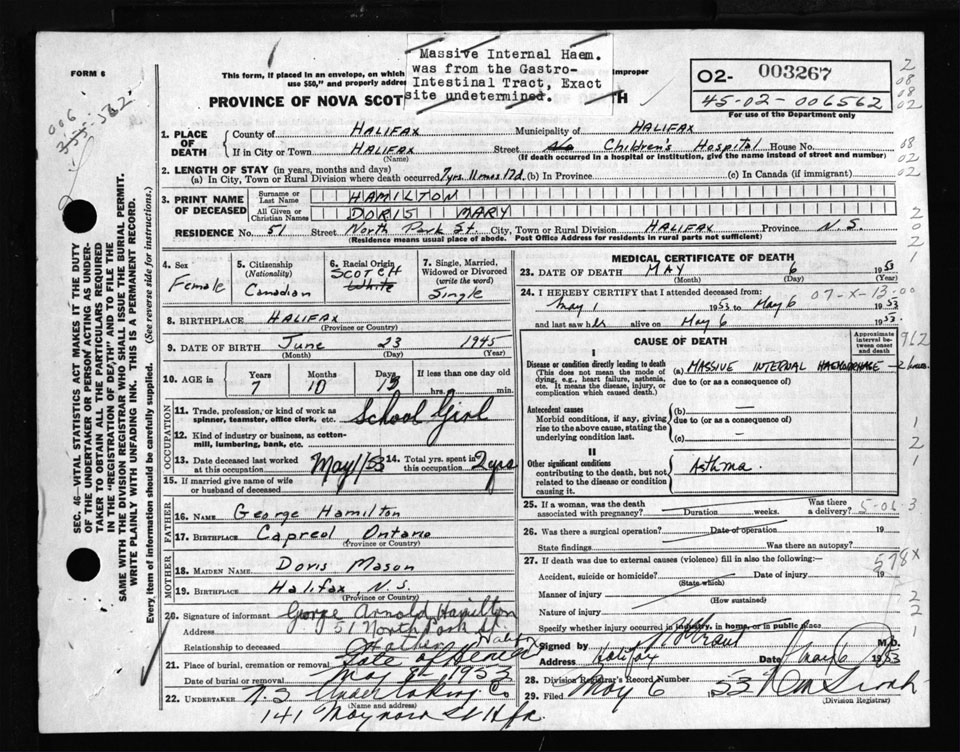 FORM 6
This form, if placed in an envelope, on which
use $50," and properly addre
improper
Massive Internal Haem.
was from the Gastro-
Intestinal Tract, Exact
site undetermined.
02- 003267
45-02-006562
For use of the Department only
PROVINCE OF NOVA SCOT TH
006
555-562
2
08
08
02
1. PLACE OF DEATH
County of HALIFAX Municipality of HALIFAX
If in City or Town HALIFAX Street Children's Hospital House No.
(Name) (If death occurred in a hospital or institution, give the name instead of street and number)
08
02
2. LENGTH OF STAY (in years, months and days)
(a) In City, Town or Rural Division where death occurred 7yrs. 11mos 17d. (b) In Province (c) In Canada (if immigrant)
02
3. PRINT NAME OF DECEASED
Surname or Last Name HAMILTON
All Given or Christian Names DORIS MARY
RESIDENCE No. 51 Street North Park St. City, Town or Rural Division HALIFAX Province N.S.
(Residence means usual place of abode. Post Office Address for residents in rural parts not sufficient)
2
0
2
1
4. Sex
Female
5. Citizenship
(Nationality)
Canadian
6. Racial Origin
SCOTCH
White
7. Single, Married,
Widowed or Divorced
(write the word)
Single
8. BIRTHPLACE HALIFAX
(Province or Country)
9. DATE OF BIRTH June 23 1945
(Month) (Day) (Year)
10. AGE in Years Months Days If less than one day old
7 10 13 hrs. min.
OCCUPATION
11. Trade, profession, or kind of work as
spinner, teamster, office clerk, etc. School Girl
12. Kind of industry or business, as cotton-
mill, lumbering, bank, etc.
13. Date deceased last worked
at this occupation May 1/53
14. Total yrs. spent in
this occupation 2 yrs
15. If married give name of wife
or husband of deceased
FATHER
16. NAME George Hamilton
17. BIRTHPLACE Capreol Ontario
(Province or Country)
MOTHER
18. MAIDEN NAME Doris Mason
19. BIRTHPLACE Halifax N.S.
(Province or Country)
20. Signature of informant George Arnold Hamilton
Address 51 North Park St.
Relationship to deceased Father
21. Place of burial, cremation or removal Gate of Heaven
Date of burial or removal May 8th 1953
22. UNDERTAKER N.S Undertaking Co
(Name and address)
141 Maynard St Hfx.
MEDICAL CERTIFICATE OF DEATH
23. DATE OF DEATH MAY 6 1953
(Month) (Day) (Year)
24. I HEREBY CERTIFY that I attended deceased from: 07-X-13-00
May 1 1953 to May 6 1953
and last saw her alive on May 6 1953.
CAUSE OF DEATH
Approximate
interval be-
tween onset
and death
912
I
Disease or condition directly leading to death
(This does not mean the mode of
dying, e.g., heart failure, asthenia,
etc. It means the disease, injury, or
complication which caused death.)
(a) MASSIVE INTERNAL HAEMORRHAGE
due to (or as a consequence of)
Antecedent causes
Morbid conditions, if any, giving
rise to the above cause, stating the
underlying condition last.
(b) —
due to (or as a consequence of)
(c) —
II
Other significant conditions
contributing to the death, but not
related to the disease or condition
causing it.
Asthma.
1
2
1
25. If a woman, was the death
associated with pregnancy? Duration weeks. Was there
a delivery? 5-06 3
26. Was there a surgical operation? Date of operation 19
State findings Was there an autopsy?
27. If death was due to external causes (violence) fill in also the following: 578X
Accident, suicide or homicide? Date of injury 19
(State which)
Manner of injury
(How sustained)
Nature of injury
Specify whether injury occurred in industry, in home, or in public place
2
2
1
Signed by M.D.
Address Halifax Date May 6 1953
28. Division Registrar's Record Number
29. Filed May 6 1953
(Division Registrar)
SEC. 46—VITAL STATISTICS ACT MAKES IT THE DUTY
OF THE UNDERTAKER OR PERSON ACTING AS UNDER-
TAKER TO OBTAIN ALL THE PARTICULARS REQUIRED
IN THE "REGISTRATION OF DEATH" AND TO FILE THE
SAME WITH THE DIVISION REGISTRAR WHO SHALL ISSUE THE BURIAL PERMIT.
WRITE PLAINLY WITH UNFADING INK. THIS IS A PERMANENT RECORD.
Every item of information should be carefully supplied. (See reverse side for instructions.)